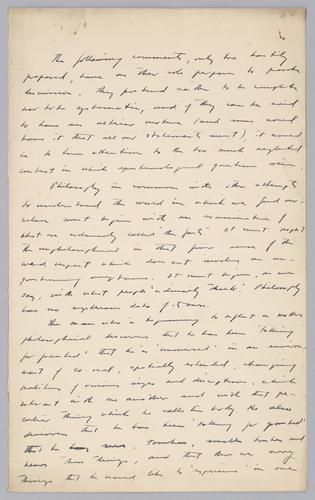 The following comments, only too hastily
prepared, have as their sole purpose to provoke
discussion. They pretend neither to be complete
nor to be systematic, and if they can be said
to have an ulterior motive (and some would
have it that all our statements must), it would
be to turn attention to the too much neglected
context in which epistemological questions arise.
Philosophy in common with other attempts
to understand the world in which we find our-
selves must begin with an examination of
what are ordinarily called "the facts". It must
in that sense of the
word which does not involve an un-
. It must begin, as we
say, with what people ordinarily "think". Philosophy
has no mysterious data of its own.
The man who is beginning to reflect on matters
philosophical discovers that he has been "taking
for granted" that he is "immersed" in an environ-
ment of co-real, spatially extended, changing
realities of various sizes and descriptions, which
interact with one another and with that pe-
culiar thing which he calls his body. He also
discovers that he has been "taking for granted"
that he sees, touches, smells, tastes and
hears these things, and that there are many
things that he would like to "experience" in one